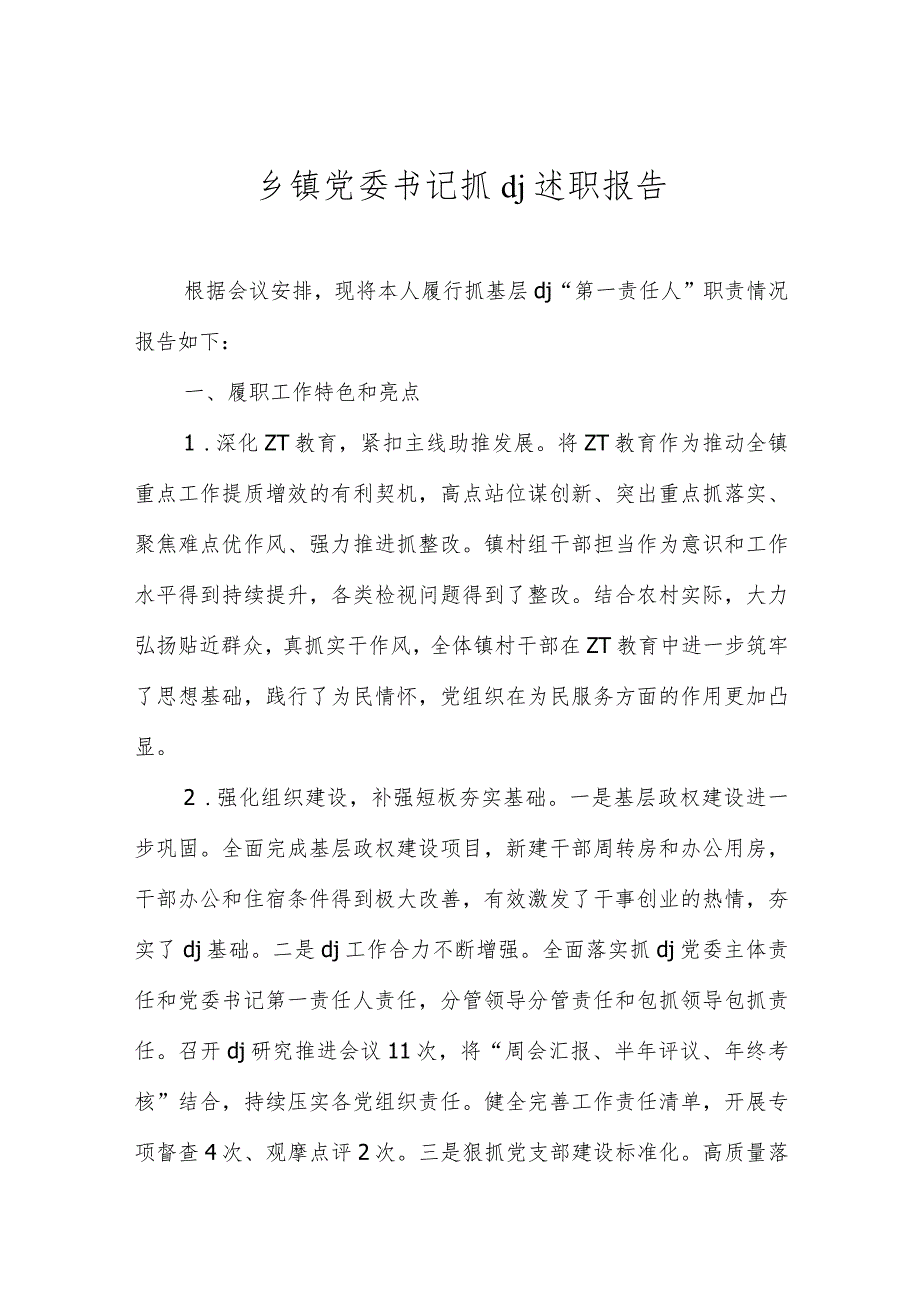 乡镇党委书记抓 dj 述职报告
根据会议安排，现将本人履行抓基层 dj“第一责任人”职责情况
报告如下：
一、履职工作特色和亮点
1 .深化 ZT 教育，紧扣主线助推发展。将 ZT 教育作为推动全镇
重点工作提质增效的有利契机，高点站位谋创新、突出重点抓落实、
聚焦难点优作风、强力推进抓整改。镇村组干部担当作为意识和工作
水平得到持续提升，各类检视问题得到了整改。结合农村实际，大力
弘扬贴近群众，真抓实干作风，全体镇村干部在 ZT 教育中进一步筑牢
了思想基础，践行了为民情怀，党组织在为民服务方面的作用更加凸
显。
2 .强化组织建设，补强短板夯实基础。一是基层政权建设进一
步巩固。全面完成基层政权建设项目，新建干部周转房和办公用房，
干部办公和住宿条件得到极大改善，有效激发了干事创业的热情，夯
实了 dj 基础。二是 dj 工作合力不断增强。全面落实抓 dj 党委主体责
任和党委书记第一责任人责任，分管领导分管责任和包抓领导包抓责
任。召开 dj 研究推进会议 11 次，将“周会汇报、半年评议、年终考
核”结合，持续压实各党组织责任。健全完善工作责任清单，开展专
项督查 4 次、观摩点评 2 次。三是狠抓党支部建设标准化。高质量落